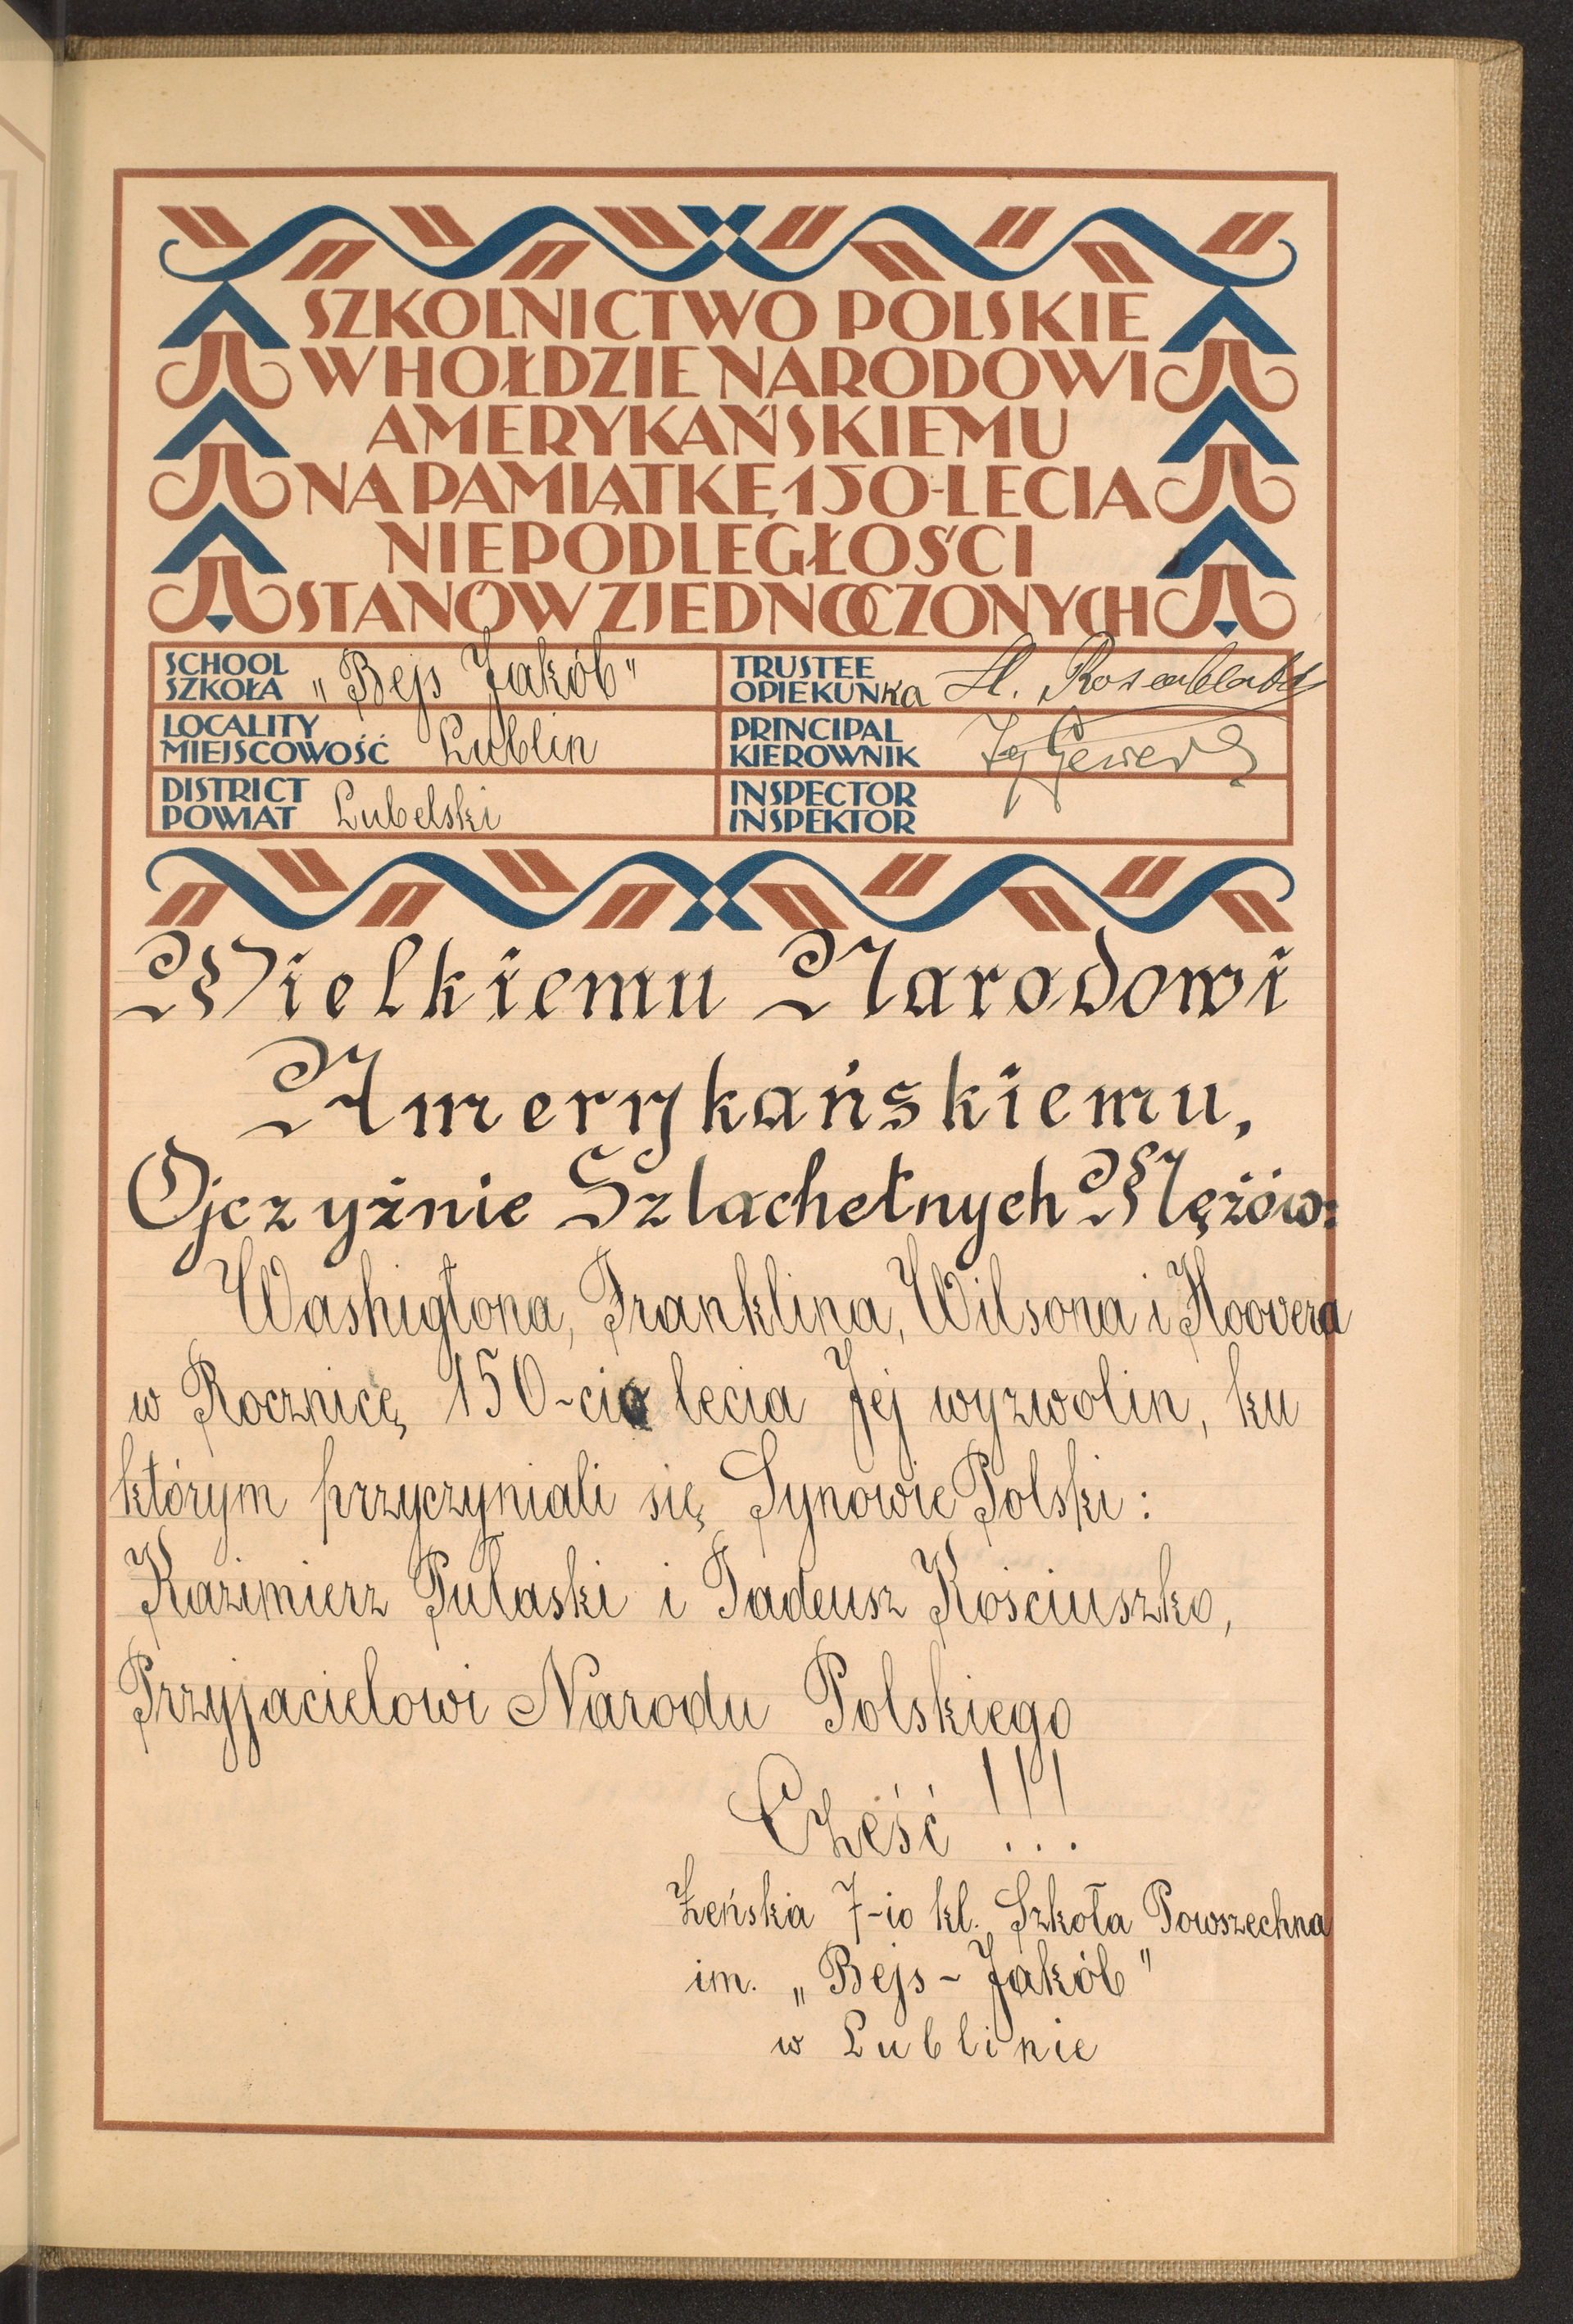 SZKOLNICTWO POLSKIE
W HOŁDZIE NARODOWI
AMERYKAŃSKIEMU
NA PAMIĄTKĘ 150-LECIA
NIEPODLEGŁOŚCI
STANÓW ZJEDNOCZONYCH
SCHOOL
SZKOŁA „Bejs Jakób"
TRUSTEE
OPIEKUNka H. Rosenblatt
LOCALITY
MIEJSCOWOŚĆ Lublin
PRINCIPAL
KIEROWNIK
DISTRICT
POWIAT Lubelski
INSPECTOR
INSPEKTOR
Wielkiemu Narodowi
Amerykańskiemu,
Ojczyźnie Szlachetnych Mężów:
Washigtona, Franklina, Wilsona i Hoovera
w Rocznicę 150-cio lecia Jej wyzwolin, ku
którym przyczyniali się Synowie Polski:
Kazimierz Pułaski i Tadeusz Kościuszko,
Przyjacielowi Narodu Polskiego
Cześć !!!
Żeńska 7-io kl. Szkoła Powszechna
im. „Bejs-Jakób"
w Lublinie